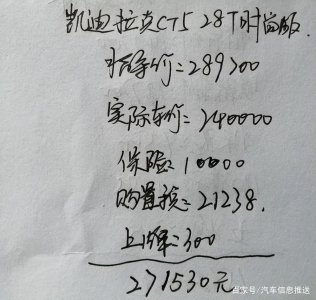 凯迪拉克CT5 28T时尚版
指导价=289700
实际车价=240000
保险=10000
购置税=21238.
上牌=300
271530元
百家号/汽车信息推送